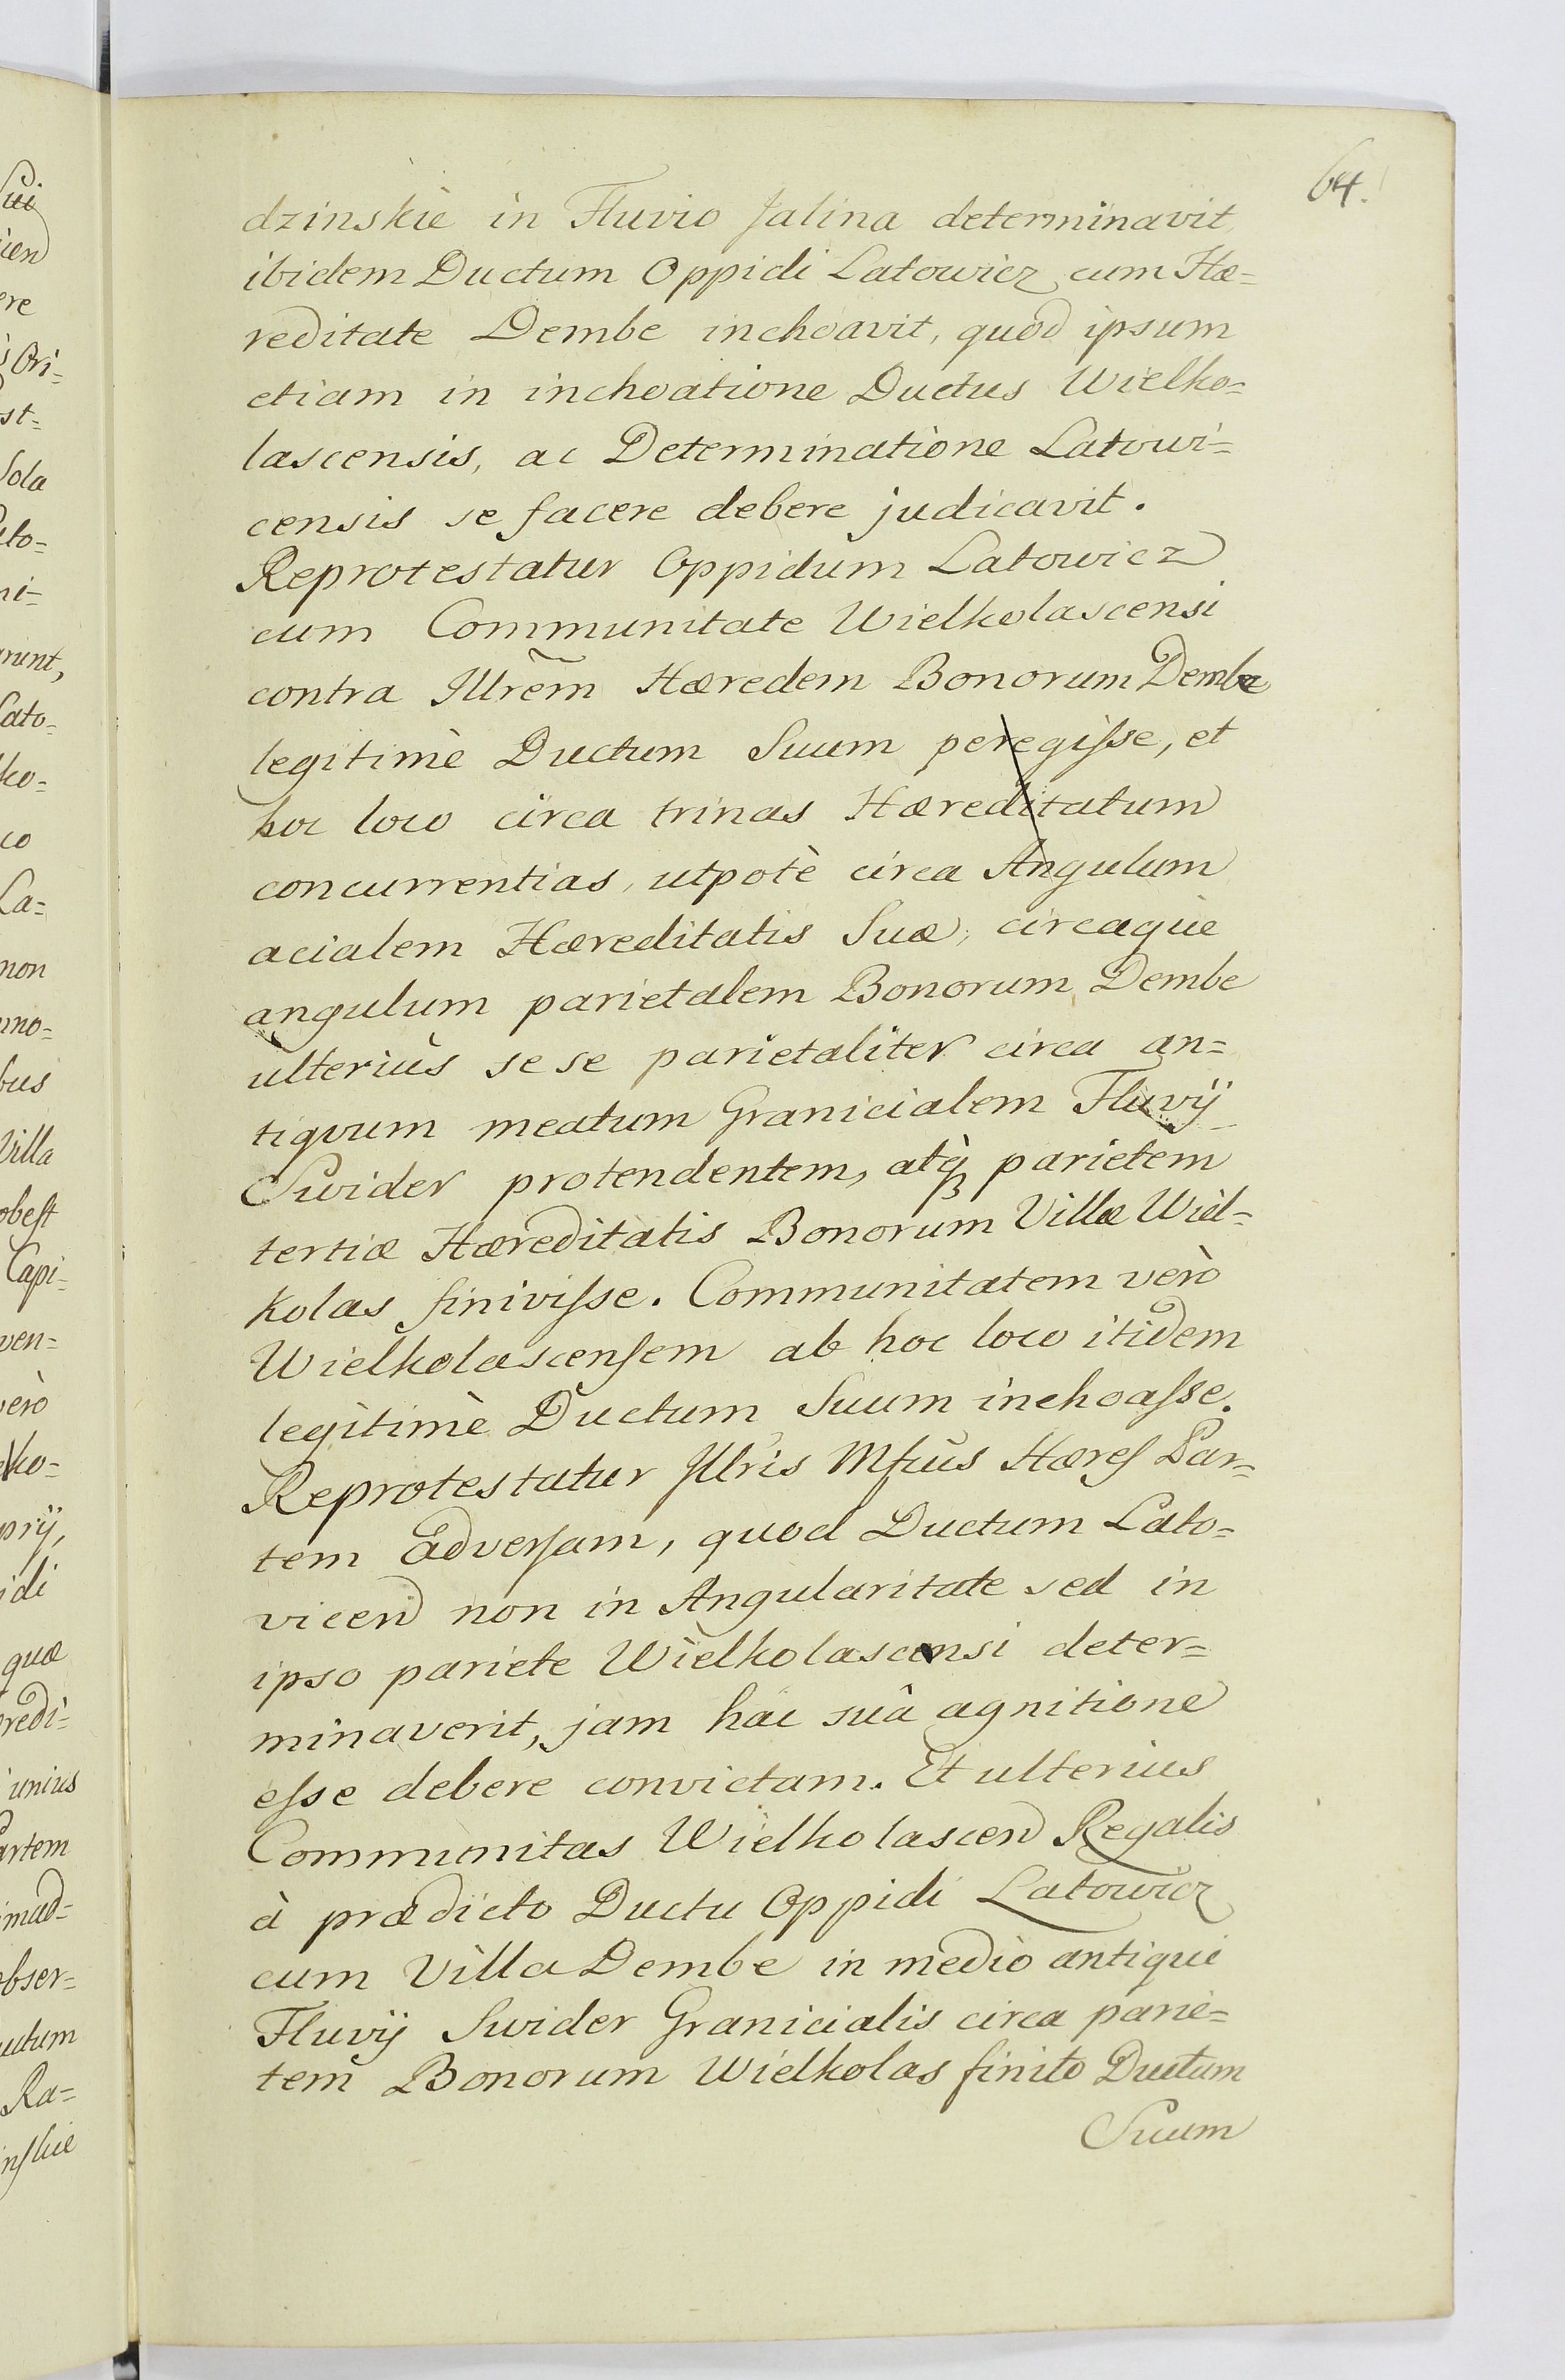 64.
dzinskie in Fluvio Jalina determinavit
ibidem Ductum Oppidi Latowicz cum Hæ=
reditate Dembe inchoavit, quod ipsum
etiam in inchoatione Ductus Wielko=
lascensis, ac Determinatione Latowi=
censis se facere debere judicavit.
Reprotestatur Oppidum Latowicz
cum Communitate Wielkolascensi
contra Illrem̃ Hæredem Bonorum Dembe
legitimè Ductum Suum peregiſse, et
hoc loco circa trinas Hæreditatum
concurrentias, utpotè circa Angulum
acialem Hæreditatis Suæ, circaque
angulum parietalem Bonorum Dembe
ulteriùs sese parietaliter circa an=
tiquum meatum Granicialem Fluvÿ
Swider protendentem, atq́ꝫ parietem
tertiæ Hæreditatis Bonorum Villæ Wiel=
kolas finiviſse. Communitatem verò
Wielkolascenſem ab hoc loco itidem
legitimè Ductum Suum inchoaſse.
Reprotestatur Illris Mſicus Hæreſ Par=
tem Adverſam, quod Ductum Lato=
vicen non in Angularitate sed in
ipso pariete Wielkolascensi deter=
minaverit, jam hác suâ agnitione
eſse debere convictam. Et ulterius
Communitas Wielkolascen Regalis
à prædicto Ductu Oppidi Latowicz
cum Villa Dembe in medio antiqui
Fluvÿ Swider Granicialis circa parie=
tem Bonorum Wielkolas finito Ductum
Suum